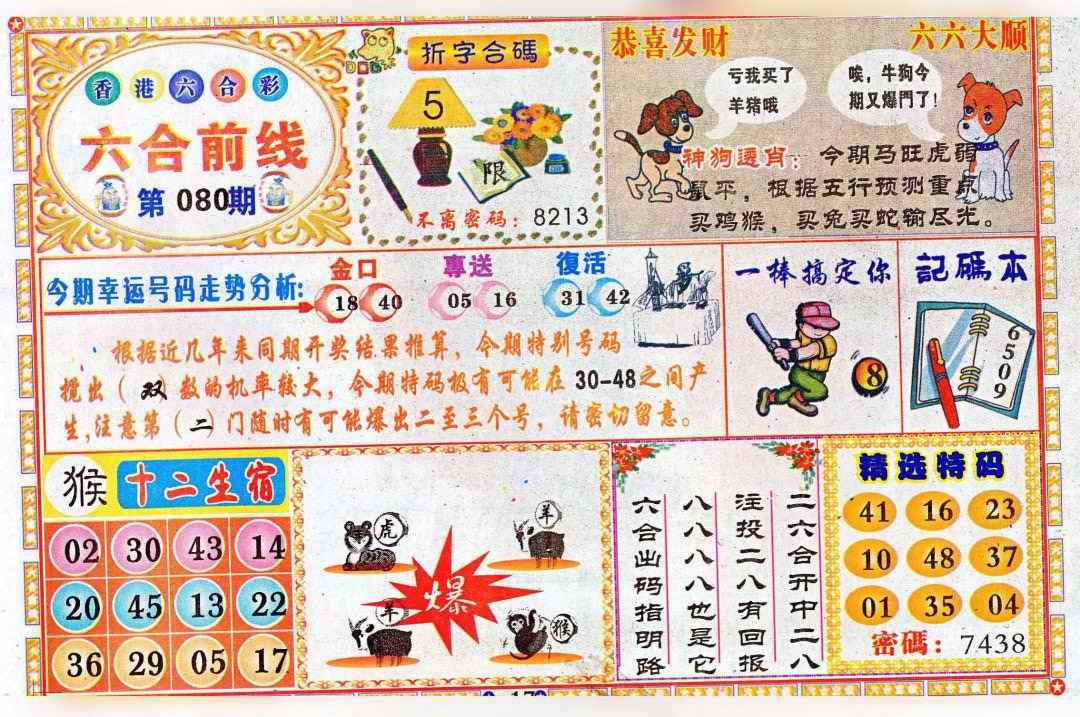 香港六合彩
六合前线
第 080期
折字合碼
5
限
不离密码：8213
恭喜发财
六六大顺
亏我买了
羊猪哦
唉，牛狗今
期又爆門了!
神狗透肖：今期马旺虎弱
鼠平，根据五行预测重点
买鸡猴，买兔买蛇输尽光。
今期幸运号码走势分析:
金口
18 40
專送
05 16
復活
31 42
根据近几年来同期开奖结果推算，今期特别号码
搅出（双）数的机率较大，今期特码极有可能在30-48之间产
生,注意第（二）门随时有可能爆出二至三个号，请密切留意。
一棒搞定你
8
記碼本
6509
猴
十二生宿
02 30 43 14
20 45 13 22
36 29 05 17
虎
羊
爆
羊
猴
二六合开中二八
注投二八有回报
八八八八也是它
六合出码指明路
精选特码
41 16 23
10 48 37
01 35 04
密碼：7438